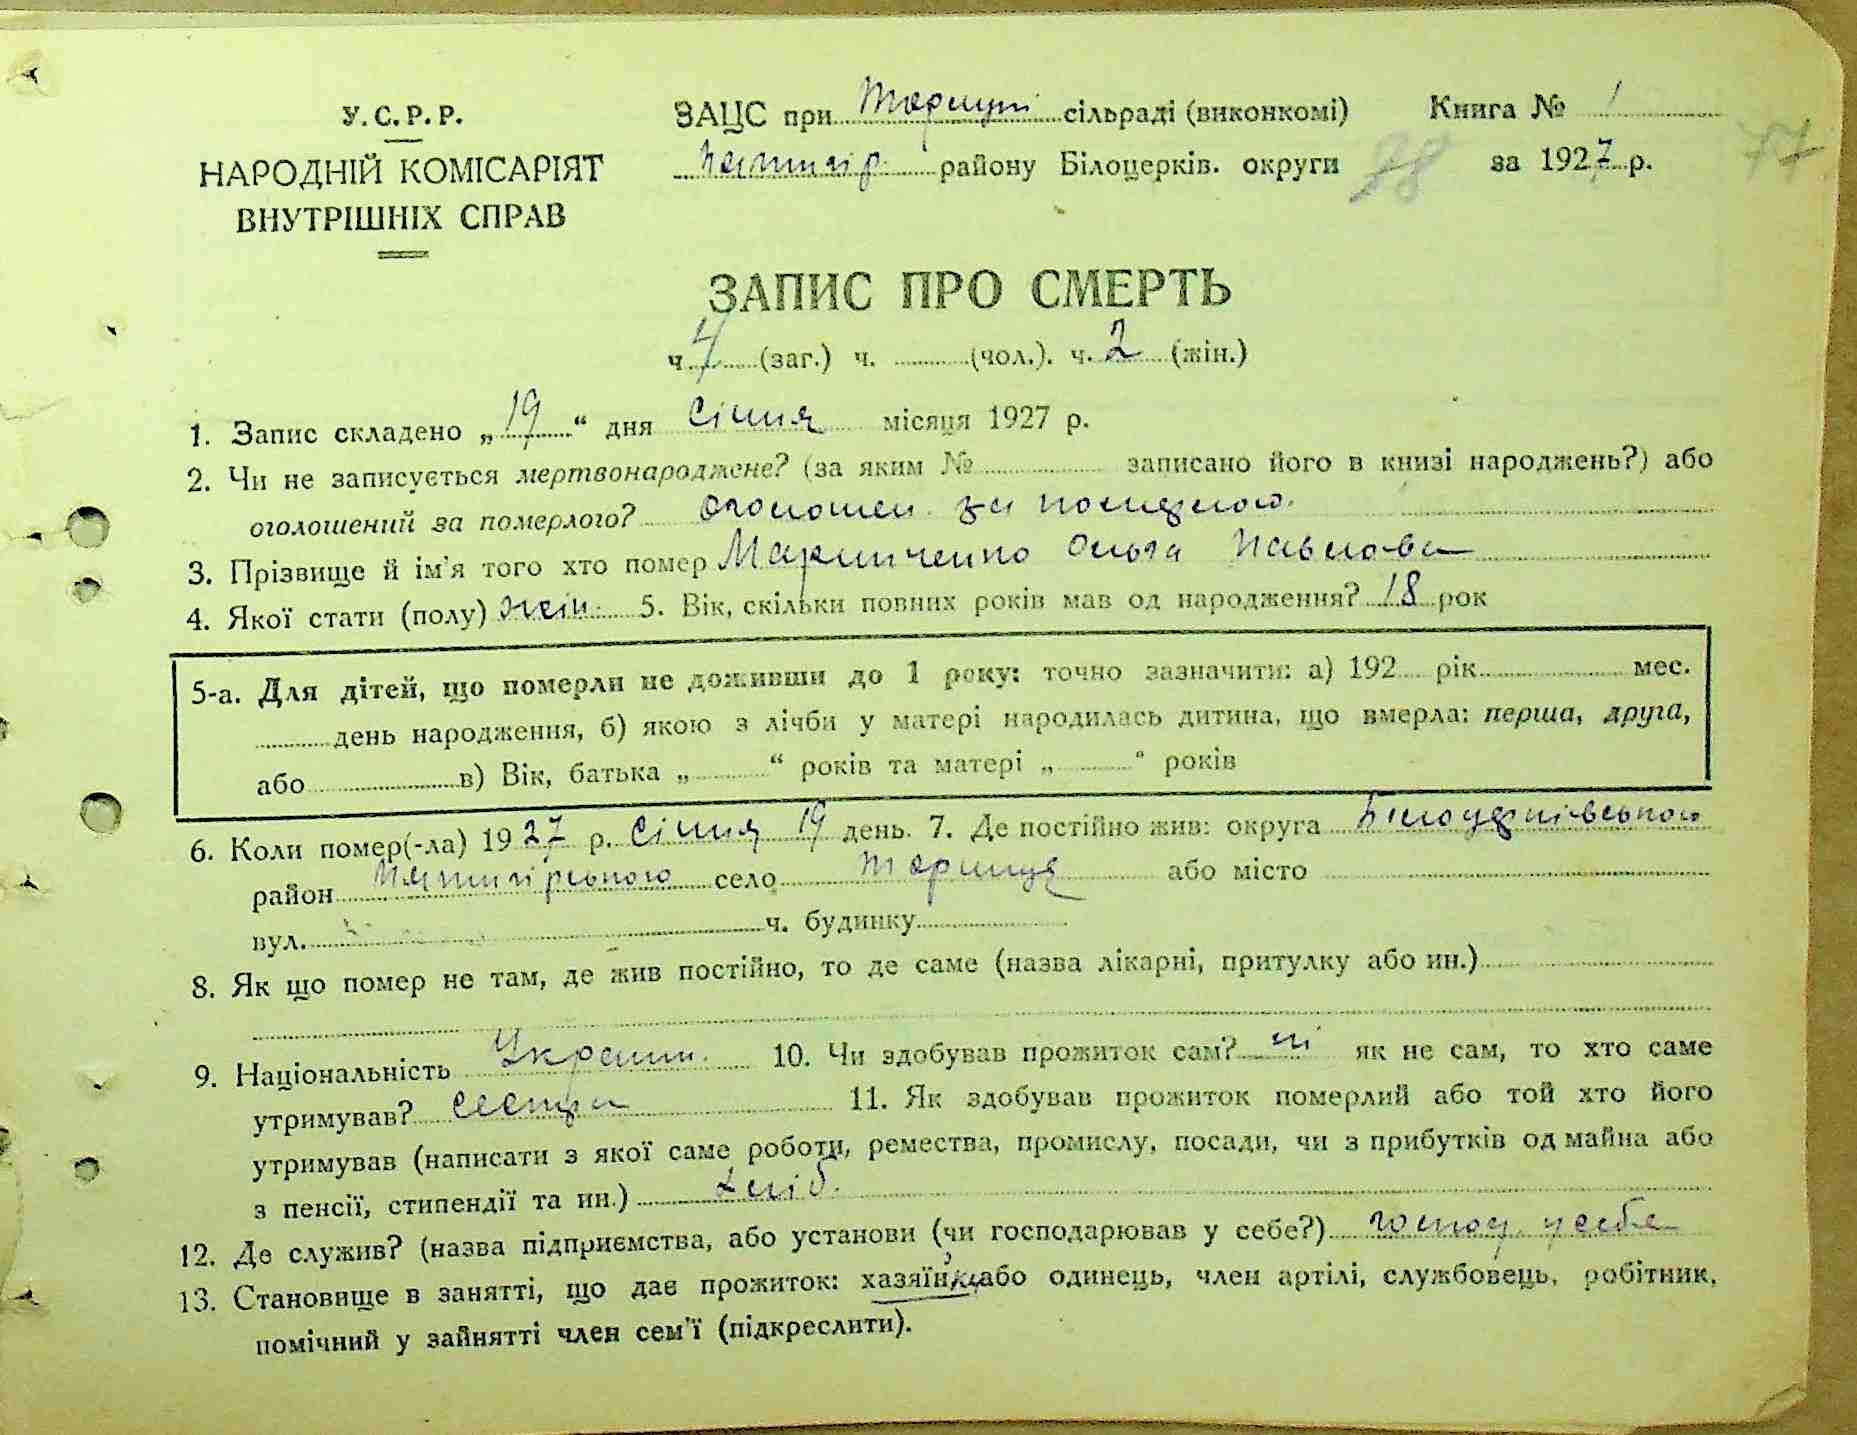 У.С.Р.Р.
НАРОДНІЙ КОМІСАРІЯТ
ВНУТРІШНІХ СПРАВ
ЗАЦС при Териці сільраді (виконкомі) Книга № 1
Пятигір. району Білоцерків. округи 78 за 1927 р. 77
ЗАПИС ПРО СМЕРТЬ
ч. 4 (заг.) ч. (чол.). ч. 2 (жін.)
1. Запис складено „19“ дня Січня місяця 1927 р.
2. Чи не записується мертвонароджене? (за яким № записано його в книзі народжень?) або
оголошений за померлого? оголошен за померлою
3. Прізвище й ім'я того хто помер Марипченко Ольга Павлова
4. Якої стати (полу) жін. 5. Вік, скільки повних років мав од народження? 18 рок
5-а. Для дітей, що померли не доживши до 1 року: точно зазначити: а) 192 рік мес.
день народження, б) якою з лічби у матері народилась дитина, що вмерла: перша, друга,
або в) Вік, батька „ “ років та матері „ “ років
6. Коли помер(-ла) 1927 р. Січня 19 день. 7. Де постійно жив: округа Білоцерківського
район Пятигірського село Териця або місто
вул. ч. будинку
8. Як що помер не там, де жив постійно, то де саме (назва лікарні, притулку або ин.)
9. Національність Украин. 10. Чи здобував прожиток сам? ні як не сам, то хто саме
утримував? сестра 11. Як здобував прожиток померлий або той хто його
утримував (написати з якої саме роботи, ремества, промислу, посади, чи з прибутків од майна або
з пенсії, стипендії та ин.) хліб.
12. Де служив? (назва підприємства, або установи (чи господарював у себе?) господ. у себе
13. Становище в занятті, що дає прожиток: хазяїн, або одинець, член артілі, службовець, робітник,
помічний у зайнятті член сем'ї (підкреслити).